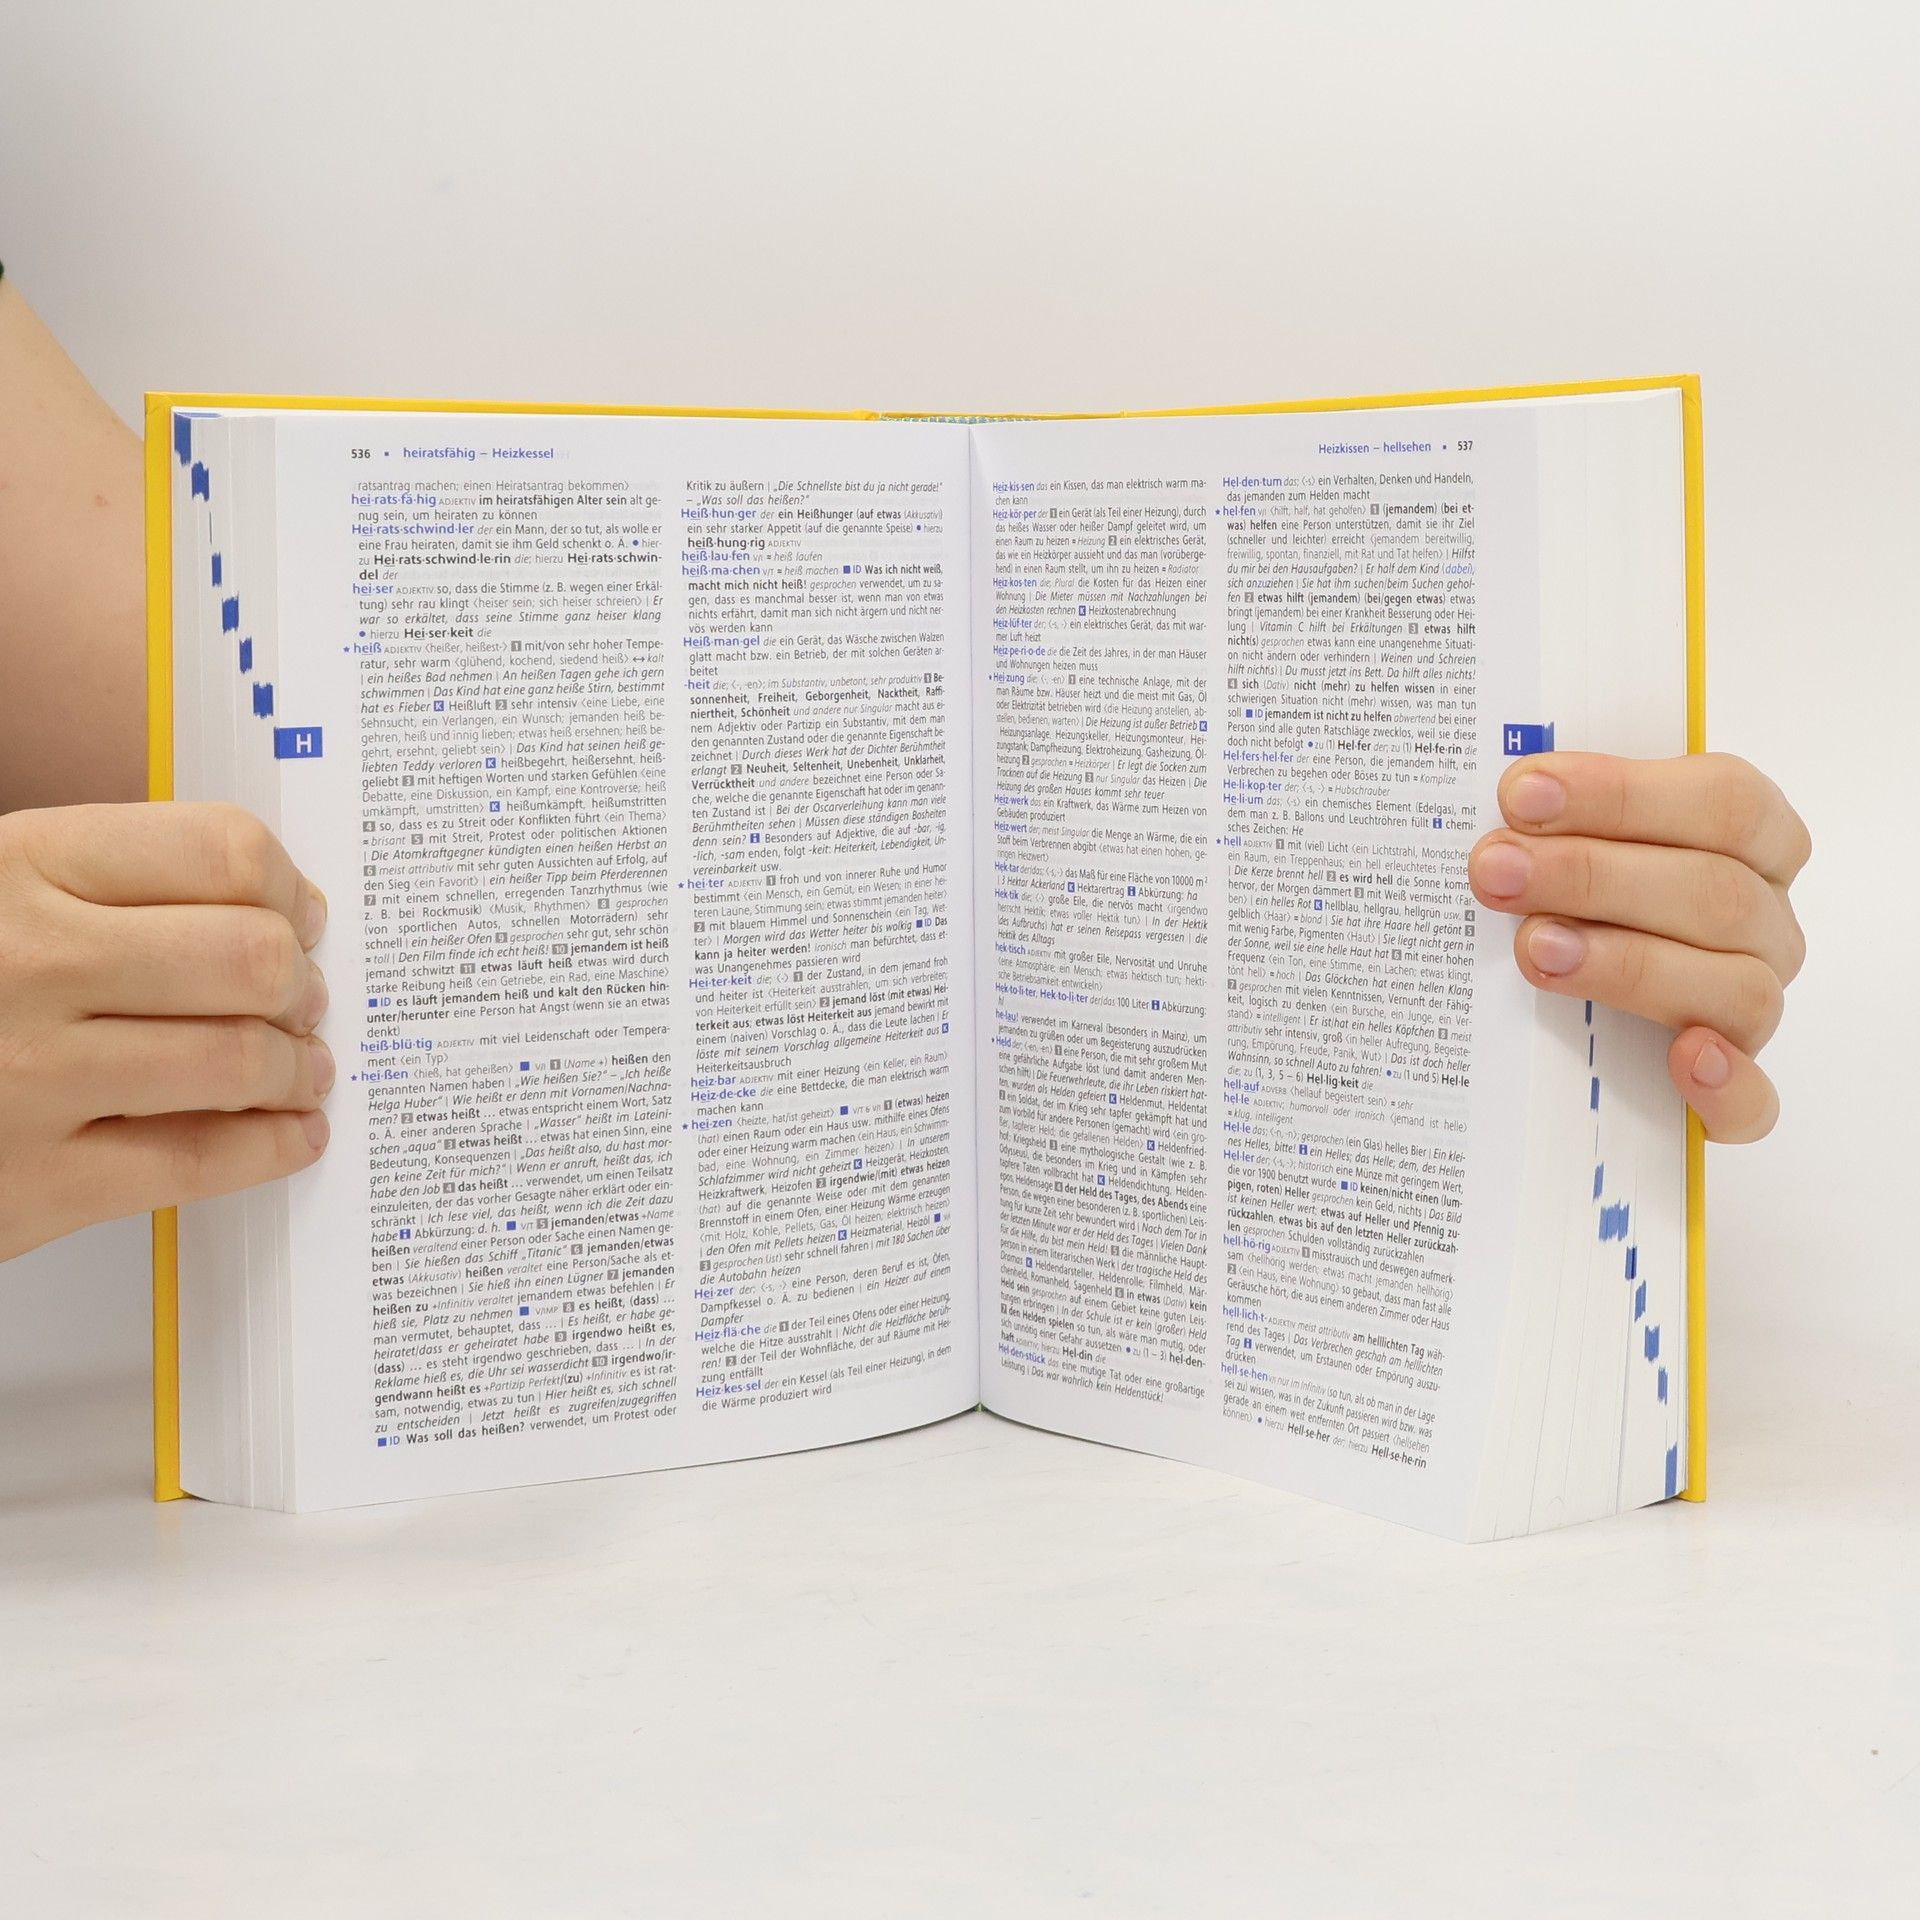 536 ▪ heiratsfähig – Heizkessel
ratsantrag machen; einen Heiratsantrag bekommen⟩
hei·rats·fä·hig ADJEKTIV im heiratsfähigen Alter sein alt ge-
nug sein, um heiraten zu können
Hei·rats·schwind·ler der ein Mann, der so tut, als wolle er
eine Frau heiraten, damit sie ihm Geld schenkt o. Ä. ● hier-
zu Hei·rats·schwind·le·rin die; hierzu Hei·rats·schwin-
del der
hei·ser ADJEKTIV so, dass die Stimme (z. B. wegen einer Erkäl-
tung) sehr rau klingt ⟨heiser sein; sich heiser schreien⟩ | Er
war so erkältet, dass seine Stimme ganz heiser klang
● hierzu Hei·ser·keit die
★ heiß ADJEKTIV ⟨heißer, heißest-⟩ 1 mit/von sehr hoher Tempe-
ratur, sehr warm ⟨glühend, kochend, siedend heiß⟩ ↔ kalt
| ein heißes Bad nehmen | An heißen Tagen gehe ich gern
schwimmen | Das Kind hat eine ganz heiße Stirn, bestimmt
hat es Fieber K Heißluft 2 sehr intensiv ⟨eine Liebe, eine
Sehnsucht, ein Verlangen, ein Wunsch; jemanden heiß be-
gehren, heiß und innig lieben; etwas heiß ersehnen; heiß be-
gehrt, ersehnt, geliebt sein⟩ | Das Kind hat seinen heiß ge-
liebten Teddy verloren K heißbegehrt, heißersehnt, heiß-
geliebt 3 mit heftigen Worten und starken Gefühlen ⟨eine
Debatte, eine Diskussion, ein Kampf, eine Kontroverse; heiß
umkämpft, umstritten⟩ K heißumkämpft, heißumstritten
4 so, dass es zu Streit oder Konflikten führt ⟨ein Thema⟩
= brisant 5 mit Streit, Protest oder politischen Aktionen
| Die Atomkraftgegner kündigten einen heißen Herbst an
6 meist attributiv mit sehr guten Aussichten auf Erfolg, auf
den Sieg ⟨ein Favorit⟩ | ein heißer Tipp beim Pferderennen
7 mit einem schnellen, erregenden Tanzrhythmus (wie
z. B. bei Rockmusik) ⟨Musik, Rhythmen⟩ 8 gesprochen
(von sportlichen Autos, schnellen Motorrädern) sehr
schnell | ein heißer Ofen 9 gesprochen sehr gut, sehr schön
= toll | Den Film finde ich echt heiß! 10 jemandem ist heiß
jemand schwitzt 11 etwas läuft heiß etwas wird durch
starke Reibung heiß ⟨ein Getriebe, ein Rad, eine Maschine⟩
■ ID es läuft jemandem heiß und kalt den Rücken hin-
unter/herunter eine Person hat Angst (wenn sie an etwas
denkt)
heiß·blü·tig ADJEKTIV mit viel Leidenschaft oder Tempera-
ment ⟨ein Typ⟩
★ hei·ßen ⟨hieß, hat geheißen⟩ ■ V/I 1 (Name +) heißen den
genannten Namen haben | „Wie heißen Sie?“ – „Ich heiße
Helga Huber“ | Wie heißt er denn mit Vornamen/Nachna-
men? 2 etwas heißt … etwas entspricht einem Wort, Satz
o. Ä. einer anderen Sprache | „Wasser“ heißt im Lateini-
schen „aqua“ 3 etwas heißt … etwas hat einen Sinn, eine
Bedeutung, Konsequenzen | „Das heißt also, du hast mor-
gen keine Zeit für mich?“ | Wenn er anruft, heißt das, ich
habe den Job 4 das heißt … verwendet, um einen Teilsatz
einzuleiten, der das vorher Gesagte näher erklärt oder ein-
schränkt | Ich lese viel, das heißt, wenn ich die Zeit dazu
habe i Abkürzung: d. h. ■ V/T 5 jemanden/etwas +Name
heißen veraltend einer Person oder Sache einen Namen ge-
ben | Sie hießen das Schiff „Titanic“ 6 jemanden/etwas
etwas (Akkusativ) heißen veraltet eine Person/Sache als et-
was bezeichnen | Sie hieß ihn einen Lügner 7 jemanden
heißen zu +Infinitiv veraltet jemandem etwas befehlen | Er
hieß sie, Platz zu nehmen ■ V/IMP 8 es heißt, (dass) …
man vermutet, behauptet, dass … | Es heißt, er habe ge-
heiratet/dass er geheiratet habe 9 irgendwo heißt es,
(dass) … es steht irgendwo geschrieben, dass … | In der
Reklame hieß es, die Uhr sei wasserdicht 10 irgendwo/ir-
gendwann heißt es +Partizip Perfekt/(zu) +Infinitiv es ist rat-
sam, notwendig, etwas zu tun | Hier heißt es, sich schnell
zu entscheiden | Jetzt heißt es zugreifen/zugegriffen
■ ID Was soll das heißen? verwendet, um Protest oder
Kritik zu äußern | „Die Schnellste bist du ja nicht gerade!“
– „Was soll das heißen?“
Heiß·hun·ger der ein Heißhunger (auf etwas (Akkusativ))
ein sehr starker Appetit (auf die genannte Speise) ● hierzu
heiß·hung·rig ADJEKTIV
heiß·lau·fen V/I = heiß laufen
heiß·ma·chen V/T = heiß machen ■ ID Was ich nicht weiß,
macht mich nicht heiß! gesprochen verwendet, um zu sa-
gen, dass es manchmal besser ist, wenn man von etwas
nichts erfährt, damit man sich nicht ärgern und nicht ner-
vös werden kann
Heiß·man·gel die ein Gerät, das Wäsche zwischen Walzen
glatt macht bzw. ein Betrieb, der mit solchen Geräten ar-
beitet
-heit die; ⟨-, -en⟩; im Substantiv, unbetont, sehr produktiv 1 Be-
sonnenheit, Freiheit, Geborgenheit, Nacktheit, Raffi-
niertheit, Schönheit und andere nur Singular macht aus ei-
nem Adjektiv oder Partizip ein Substantiv, mit dem man
den genannten Zustand oder die genannte Eigenschaft be-
zeichnet | Durch dieses Werk hat der Dichter Berühmtheit
erlangt 2 Neuheit, Seltenheit, Unebenheit, Unklarheit,
Verrücktheit und andere bezeichnet eine Person oder Sa-
che, welche die genannte Eigenschaft hat oder im genann-
ten Zustand ist | Bei der Oscarverleihung kann man viele
Berühmtheiten sehen | Müssen diese ständigen Bosheiten
denn sein? i Besonders auf Adjektive, die auf -bar, -ig,
-lich, -sam enden, folgt -keit: Heiterkeit, Lebendigkeit, Un-
vereinbarkeit usw.
★ hei·ter ADJEKTIV 1 froh und von innerer Ruhe und Humor
bestimmt ⟨ein Mensch, ein Gemüt, ein Wesen; in einer hei-
teren Laune, Stimmung sein; etwas stimmt jemanden heiter⟩
2 mit blauem Himmel und Sonnenschein ⟨ein Tag, Wet-
ter⟩ | Morgen wird das Wetter heiter bis wolkig ■ ID Das
kann ja heiter werden! ironisch man befürchtet, dass et-
was Unangenehmes passieren wird
Hei·ter·keit die; ⟨-⟩ 1 der Zustand, in dem jemand froh
und heiter ist ⟨Heiterkeit ausstrahlen, um sich verbreiten;
von Heiterkeit erfüllt sein⟩ 2 jemand löst (mit etwas) Hei-
terkeit aus; etwas löst Heiterkeit aus jemand bewirkt mit
einem (naiven) Vorschlag o. Ä., dass die Leute lachen | Er
löste mit seinem Vorschlag allgemeine Heiterkeit aus K
Heiterkeitsausbruch
heiz·bar ADJEKTIV mit einer Heizung ⟨ein Keller, ein Raum⟩
Heiz·de·cke die eine Bettdecke, die man elektrisch warm
machen kann
★ hei·zen ⟨heizte, hat/ist geheizt⟩ ■ V/T & V/I 1 (etwas) heizen
(hat) einen Raum oder ein Haus usw. mithilfe eines Ofens
oder einer Heizung warm machen ⟨ein Haus, ein Schwimm-
bad, eine Wohnung, ein Zimmer heizen⟩ | In unserem
Schlafzimmer wird nicht geheizt K Heizgerät, Heizkosten,
Heizkraftwerk, Heizofen 2 irgendwie/(mit) etwas heizen
(hat) auf die genannte Weise oder mit dem genannten
Brennstoff in einem Ofen, einer Heizung Wärme erzeugen
⟨mit Holz, Kohle, Pellets, Gas, Öl heizen; elektrisch heizen⟩
| den Ofen mit Pellets heizen K Heizmaterial, Heizöl ■ V/I
3 gesprochen (ist) sehr schnell fahren | mit 180 Sachen über
die Autobahn heizen
Hei·zer der; ⟨-s, -⟩ eine Person, deren Beruf es ist, Öfen,
Dampfkessel o. Ä. zu bedienen | ein Heizer auf einem
Dampfer
Heiz·flä·che die 1 der Teil eines Ofens oder einer Heizung,
welche die Hitze ausstrahlt | Nicht die Heizfläche berüh-
ren! 2 der Teil der Wohnfläche, der auf Räume mit Hei-
zung entfällt
Heiz·kes·sel der ein Kessel (als Teil einer Heizung), in dem
die Wärme produziert wird
H
Heizkissen – hellsehen ▪ 537
Heiz·kis·sen das ein Kissen, das man elektrisch warm ma-
chen kann
Heiz·kör·per der 1 ein Gerät (als Teil einer Heizung), durch
das heißes Wasser oder heißer Dampf geleitet wird, um
einen Raum zu heizen = Heizung 2 ein elektrisches Gerät,
das wie ein Heizkörper aussieht und das man (vorüberge-
hend) in einen Raum stellt, um ihn zu heizen = Radiator
Heiz·kos·ten die; Plural die Kosten für das Heizen einer
Wohnung | Die Mieter müssen mit Nachzahlungen bei
den Heizkosten rechnen K Heizkostenabrechnung
Heiz·lüf·ter der; ⟨-s, -⟩ ein elektrisches Gerät, das mit war-
mer Luft heizt
Heiz·pe·ri·o·de die die Zeit des Jahres, in der man Häuser
und Wohnungen heizen muss
★ Hei·zung die; ⟨-, -en⟩ 1 eine technische Anlage, mit der
man Räume bzw. Häuser heizt und die meist mit Gas, Öl
oder Elektrizität betrieben wird ⟨die Heizung anstellen, ab-
stellen, bedienen, warten⟩ | Die Heizung ist außer Betrieb K
Heizungsanlage, Heizungskeller, Heizungsmonteur, Hei-
zungstank; Dampfheizung, Elektroheizung, Gasheizung, Öl-
heizung 2 gesprochen = Heizkörper | Er legt die Socken zum
Trocknen auf die Heizung 3 nur Singular das Heizen | Die
Heizung des großen Hauses kommt sehr teuer
Heiz·werk das ein Kraftwerk, das Wärme zum Heizen von
Gebäuden produziert
Heiz·wert der; meist Singular die Menge an Wärme, die ein
Stoff beim Verbrennen abgibt ⟨etwas hat einen hohen, ge-
ringen Heizwert⟩
Hek·tar der/das; ⟨-s, -⟩ das Maß für eine Fläche von 10000 m²
| 3 Hektar Ackerland K Hektarertrag i Abkürzung: ha
Hek·tik die; ⟨-⟩ große Eile, die nervös macht ⟨irgendwo
herrscht Hektik; etwas voller Hektik tun⟩ | In der Hektik
(des Aufbruchs) hat er seinen Reisepass vergessen | die
Hektik des Alltags
hek·tisch ADJEKTIV mit großer Eile, Nervosität und Unruhe
⟨eine Atmosphäre; ein Mensch; etwas hektisch tun; hekti-
sche Betriebsamkeit entwickeln⟩
Hek·to·li·ter, Hek·to·li·ter der/das 100 Liter i Abkürzung:
hl
he·lau! verwendet im Karneval (besonders in Mainz), um
jemanden zu grüßen oder um Begeisterung auszudrücken
★ Held der; ⟨-en, -en⟩ 1 eine Person, die mit sehr großem Mut
eine gefährliche Aufgabe löst (und damit anderen Men-
schen hilft) | Die Feuerwehrleute, die ihr Leben riskiert hat-
ten, wurden als Helden gefeiert K Heldenmut, Heldentat
2 ein Soldat, der im Krieg sehr tapfer gekämpft hat und
zum Vorbild für andere Personen (gemacht) wird ⟨ein gro-
ßer, tapferer Held; die gefallenen Helden⟩ K Heldenfried-
hof; Kriegsheld 3 eine mythologische Gestalt (wie z. B.
Odysseus), die besonders im Krieg und in Kämpfen sehr
tapfere Taten vollbracht hat K Heldendichtung, Helden-
epos, Heldensage 4 der Held des Tages, des Abends eine
Person, die wegen einer besonderen (z. B. sportlichen) Leis-
tung für kurze Zeit sehr bewundert wird | Nach dem Tor in
der letzten Minute war er der Held des Tages | Vielen Dank
für die Hilfe, du bist mein Held! 5 die männliche Haupt-
person in einem literarischen Werk | der tragische Held des
Dramas K Heldendarsteller, Heldenrolle; Filmheld, Mär-
chenheld, Romanheld, Sagenheld 6 in etwas (Dativ) kein
Held sein gesprochen auf einem Gebiet keine guten Leis-
tungen erbringen | In der Schule ist er kein (großer) Held
7 den Helden spielen so tun, als wäre man mutig, oder
sich unnötig einer Gefahr aussetzen ● zu (1 – 3) hel·den-
haft ADJEKTIV; hierzu Hel·din die
Hel·den·stück das eine mutige Tat oder eine großartige
Leistung | Das war wahrlich kein Heldenstück!
Hel·den·tum das; ⟨-s⟩ ein Verhalten, Denken und Handeln,
das jemanden zum Helden macht
★ hel·fen V/I ⟨hilft, half, hat geholfen⟩ 1 (jemandem) (bei et-
was) helfen eine Person unterstützen, damit sie ihr Ziel
(schneller und leichter) erreicht ⟨jemandem bereitwillig,
freiwillig, spontan, finanziell, mit Rat und Tat helfen⟩ | Hilfst
du mir bei den Hausaufgaben? | Er half dem Kind (dabei),
sich anzuziehen | Sie hat ihm suchen/beim Suchen gehol-
fen 2 etwas hilft (jemandem) (bei/gegen etwas) etwas
bringt (jemandem) bei einer Krankheit Besserung oder Hei-
lung | Vitamin C hilft bei Erkältungen 3 etwas hilft
nicht(s) gesprochen etwas kann eine unangenehme Situati-
on nicht ändern oder verhindern | Weinen und Schreien
hilft nicht(s) | Du musst jetzt ins Bett. Da hilft alles nichts!
4 sich (Dativ) nicht (mehr) zu helfen wissen in einer
schwierigen Situation nicht (mehr) wissen, was man tun
soll ■ ID jemandem ist nicht zu helfen abwertend bei einer
Person sind alle guten Ratschläge zwecklos, weil sie diese
doch nicht befolgt ● zu (1) Hel·fer der; zu (1) Hel·fe·rin die
Hel·fers·hel·fer der eine Person, die jemandem hilft, ein
Verbrechen zu begehen oder Böses zu tun = Komplize
He·li·kop·ter der; ⟨-s, -⟩ = Hubschrauber
He·li·um das; ⟨-s⟩ ein chemisches Element (Edelgas), mit
dem man z. B. Ballons und Leuchtröhren füllt i chemi-
sches Zeichen: He
★ hell ADJEKTIV 1 mit (viel) Licht ⟨ein Lichtstrahl, Mondschein
ein Raum, ein Treppenhaus; ein hell erleuchtetes Fenster
| Die Kerze brennt hell 2 es wird hell die Sonne komm
hervor, der Morgen dämmert 3 mit Weiß vermischt ⟨Far-
ben⟩ | ein helles Rot K hellblau, hellgrau, hellgrün usw. 4
gelblich ⟨Haar⟩ = blond | Sie hat ihre Haare hell getönt 5
mit wenig Farbe, Pigmenten ⟨Haut⟩ | Sie liegt nicht gern in
der Sonne, weil sie eine helle Haut hat 6 mit einer hohen
Frequenz ⟨ein Ton, eine Stimme, ein Lachen; etwas klingt,
tönt hell⟩ = hoch | Das Glöckchen hat einen hellen Klang
7 gesprochen mit vielen Kenntnissen, Vernunft der Fähig-
keit, logisch zu denken ⟨ein Bursche, ein Junge, ein Ver-
stand⟩ = intelligent | Er ist/hat ein helles Köpfchen 8 meist
attributiv sehr intensiv, groß ⟨in heller Aufregung, Begeiste-
rung, Empörung, Freude, Panik, Wut⟩ | Das ist doch heller
Wahnsinn, so schnell Auto zu fahren! ● zu (1 und 5) Hel·le
die; zu (1, 3, 5 – 6) Hel·lig·keit die
hell·auf ADVERB ⟨hellauf begeistert sein⟩ = sehr
hel·le ADJEKTIV; humorvoll oder ironisch ⟨jemand ist helle⟩
= klug, intelligent
Hel·le das; ⟨-n, -n⟩; gesprochen (ein Glas) helles Bier | Ein klei-
nes Helles, bitte! i ein Helles; das Helle; dem, des Hellen
Hel·ler der; ⟨-s, -⟩; historisch eine Münze mit geringem Wert,
die vor 1900 benutzt wurde ■ ID keinen/nicht einen (lum-
pigen, roten) Heller gesprochen kein Geld, nichts | Das Bild
ist keinen Heller wert; etwas auf Heller und Pfennig zu-
rückzahlen, etwas bis auf den letzten Heller zurückzah-
len gesprochen Schulden vollständig zurückzahlen
hell·hö·rig ADJEKTIV 1 misstrauisch und deswegen aufmerk-
sam ⟨hellhörig werden; etwas macht jemanden hellhörig⟩
2 ⟨ein Haus, eine Wohnung⟩ so gebaut, dass man fast alle
Geräusche hört, die aus einem anderen Zimmer oder Haus
kommen
hell·licht- ADJEKTIV meist attributiv am helllichten Tag wäh-
rend des Tages | Das Verbrechen geschah am helllichten
Tag i verwendet, um Erstaunen oder Empörung auszu-
drücken
hell·se·hen V/I nur im Infinitiv (so tun, als ob man in der Lage
sei zu) wissen, was in der Zukunft passieren wird bzw. was
gerade an einem weit entfernten Ort passiert ⟨hellsehen
können⟩ ● hierzu Hell·se·her der; hierzu Hell·se·he·rin
H